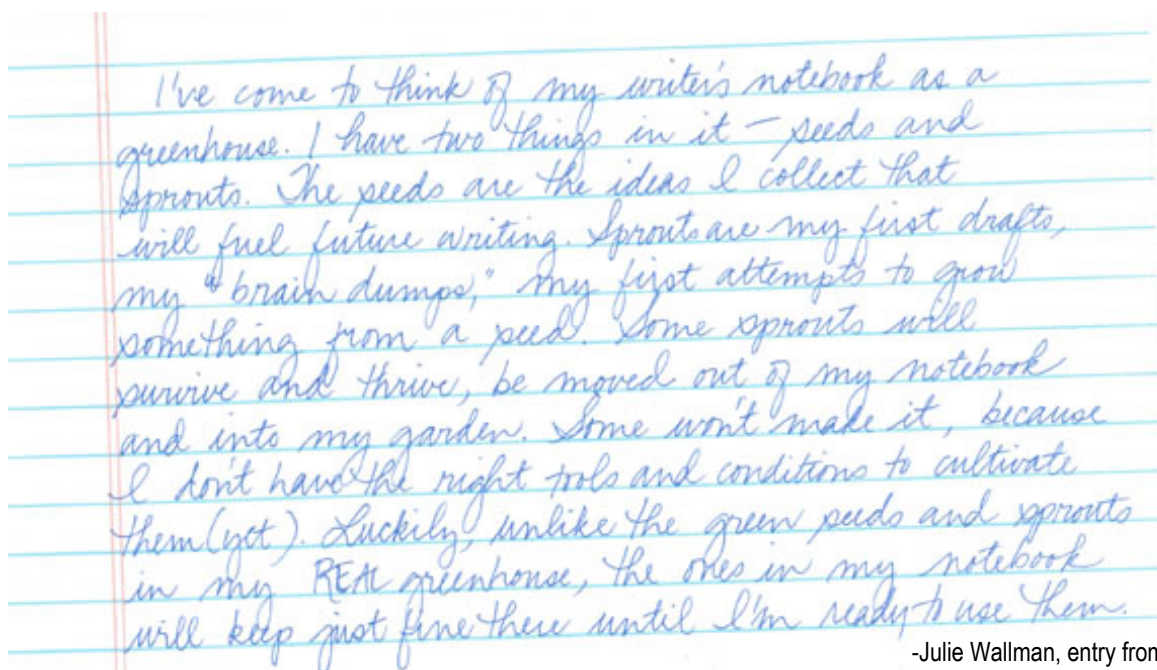 I've come to think of my writer's notebook as a
greenhouse. I have two things in it – seeds and
sprouts. The seeds are the ideas I collect that
will fuel future writing. Sprouts are my first drafts,
my "brain dumps," my first attempts to grow
something from a seed. Some sprouts will
survive and thrive, be moved out of my notebook
and into my garden. Some won't make it, because
I don't have the right tools and conditions to cultivate
them (yet). Luckily, unlike the green seeds and sprouts
in my REAL greenhouse, the ones in my notebook
will keep just fine there until I'm ready to use them.
-Julie Wallman, entry from